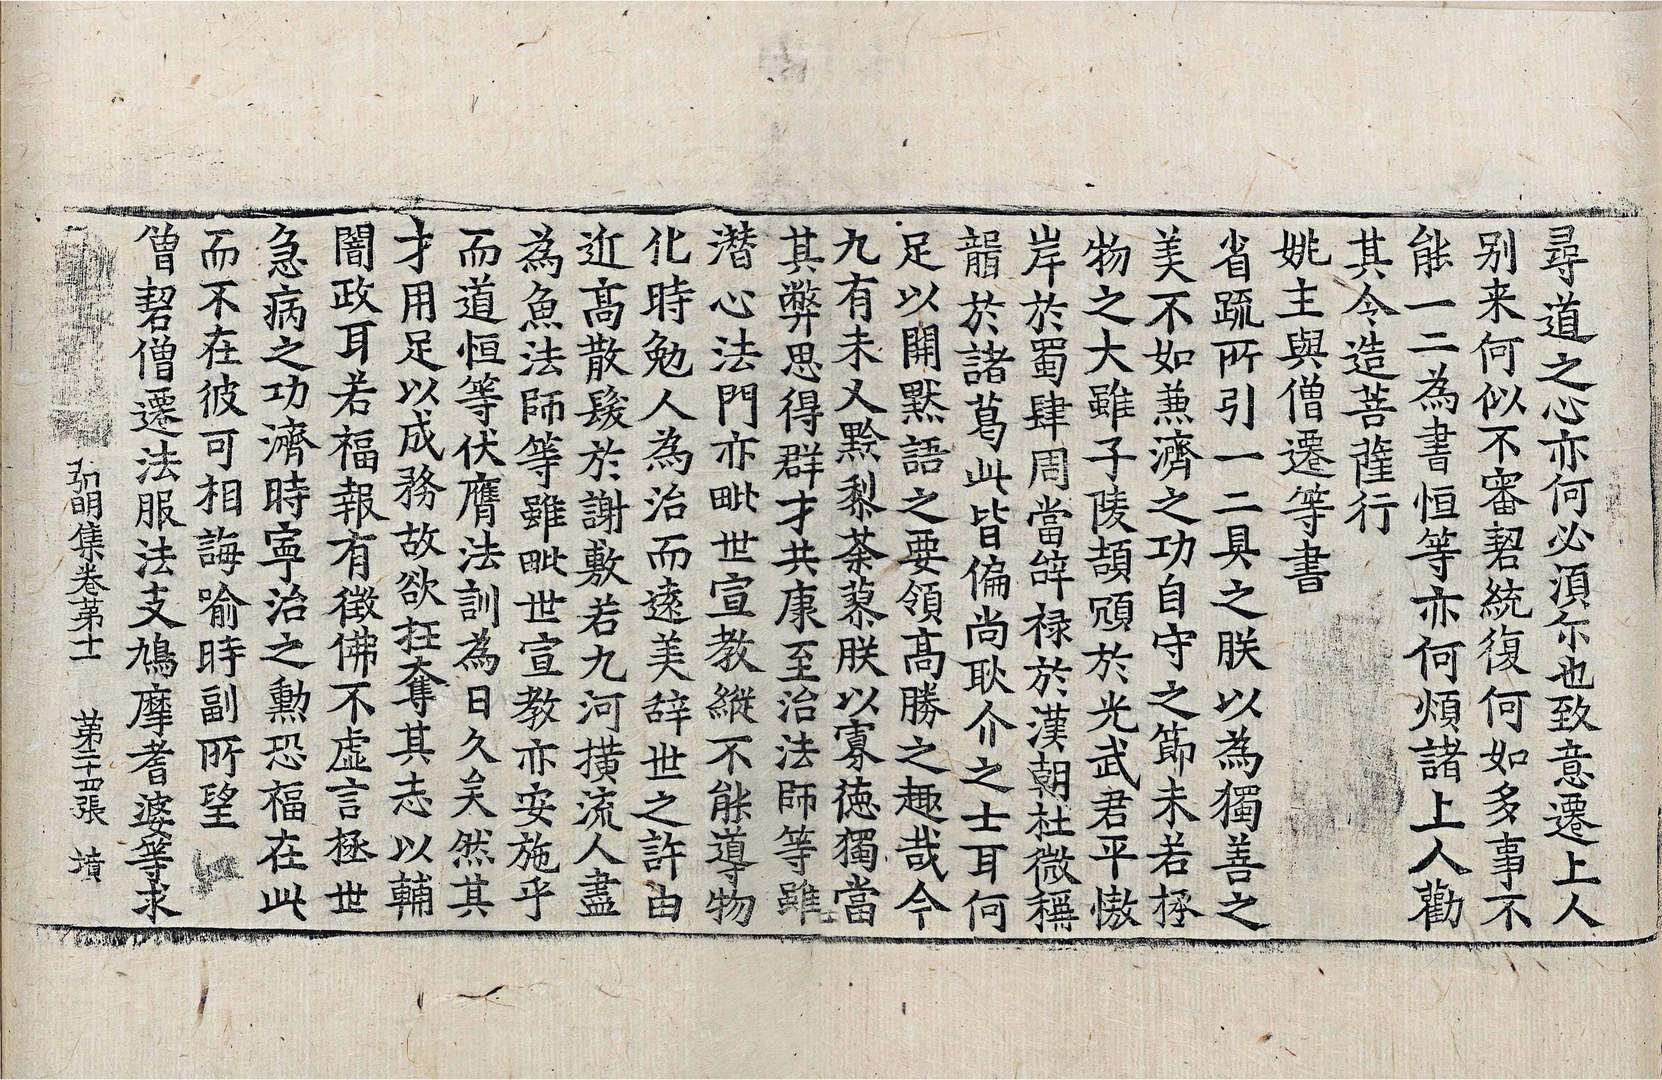 尋道之心亦何必須尒也致意遷上人
别来何似不審䂮統復何如多事不
能一二為書恒等亦何煩諸上人勸
其令造菩薩行
姚主與僧遷等書
省䟽所引一二具之朕以為獨善之
美不如兼濟之功自守之節未若拯
物之大雖子陵頡頏於光武君平慠
岸於蜀肆周當辝禄於漢朝杜微稱
聾於諸葛此皆偏尚耿介之士耳何
足以開黙語之要領高勝之趣哉今
九有未乂黔黎荼蓼朕以寡徳獨當
其弊思得群才共康至治法師等雖
潜心法門亦毗世宣教縱不能導物
化時勉人為治而逺美辝世之許由
近髙散髮於謝敷若九河横流人盡
為魚法師等雖毗世宣教亦安施乎
而道恒等伏膺法訓為日久矣然其
才用足以成務故欲抂奪其志以輔
闇政耳若福報有徵佛不虚言拯世
急病之功濟時寧治之勲恐福在此
而不在彼可相誨喻時副所望
僧䂮僧遷法服法支鳩摩耆婆等求
弘明集卷第十一　第二十四張　墳